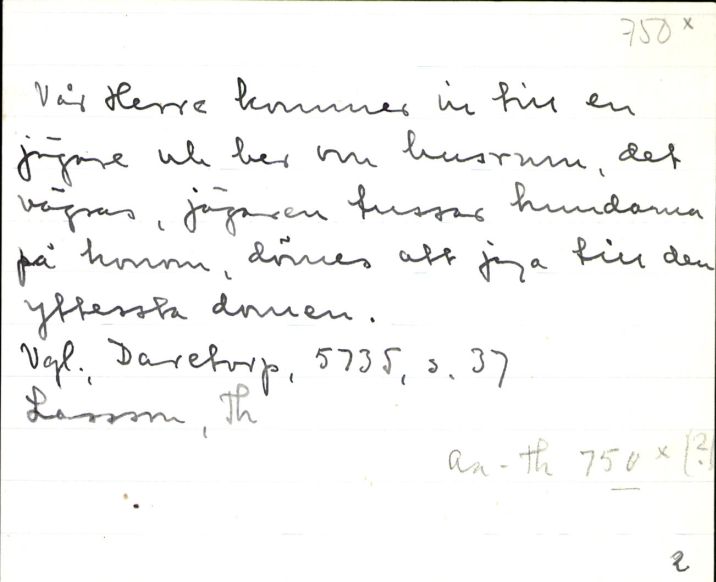 750 x
Vår Herre kommer in till en
jägare och ber om husrum, det
vägras, jägaren tussar hundarna
på honom, dömes att jaga till den
yttersta domen.
Vgl., Daretorp, 5735, s. 37
Larsson, Th
Aa-Th 750 x (?)
2